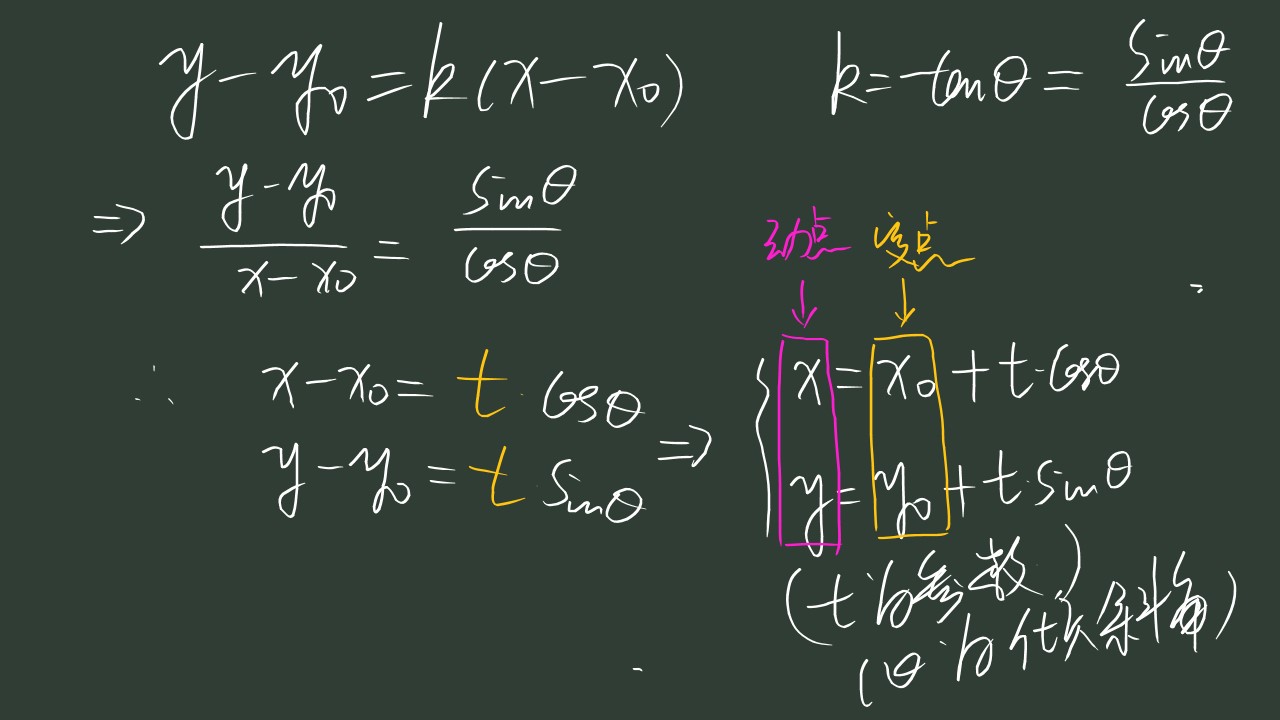 y-y₀=k(x-x₀)
k=tanθ=sinθ/cosθ
⇒ (y-y₀)/(x-x₀)=sinθ/cosθ
动点 定点
∴ x-x₀=t·cosθ
y-y₀=t sinθ
⇒ { x=x₀+t·cosθ
y=y₀+t·sinθ
(t为参数)
(θ为倾斜角)